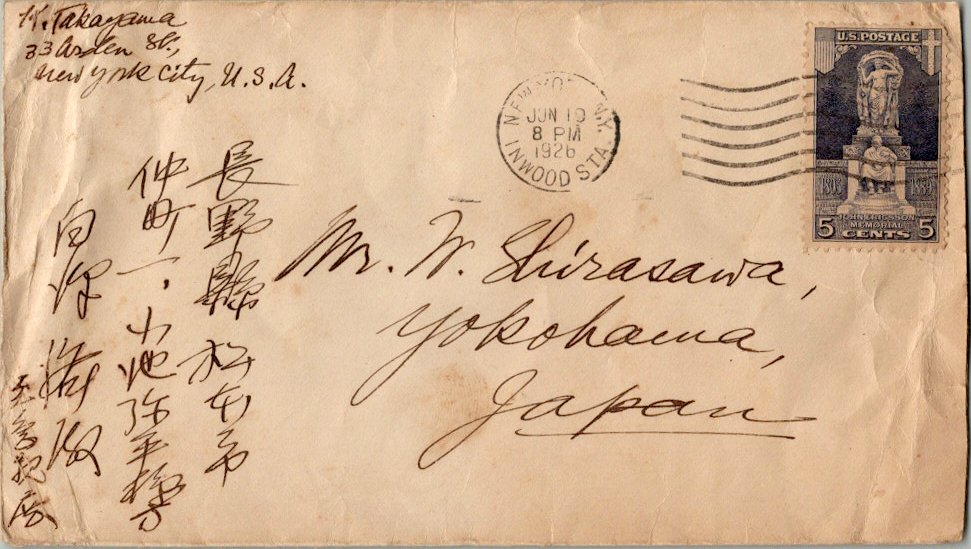 K. Takayama
33 Arden St.,
New York City, U.S.A.
NEW YORK, N.Y.
JUN 19
8 PM
1926
INWOOD STA.
U.S. POSTAGE
1803 1889
JOHN ERICSSON
MEMORIAL
5 CENTS 5
Mr. W. Shirasawa,
Yokohama,
Japan
長野縣松本市
仲町一、小池弥平様方
白沢